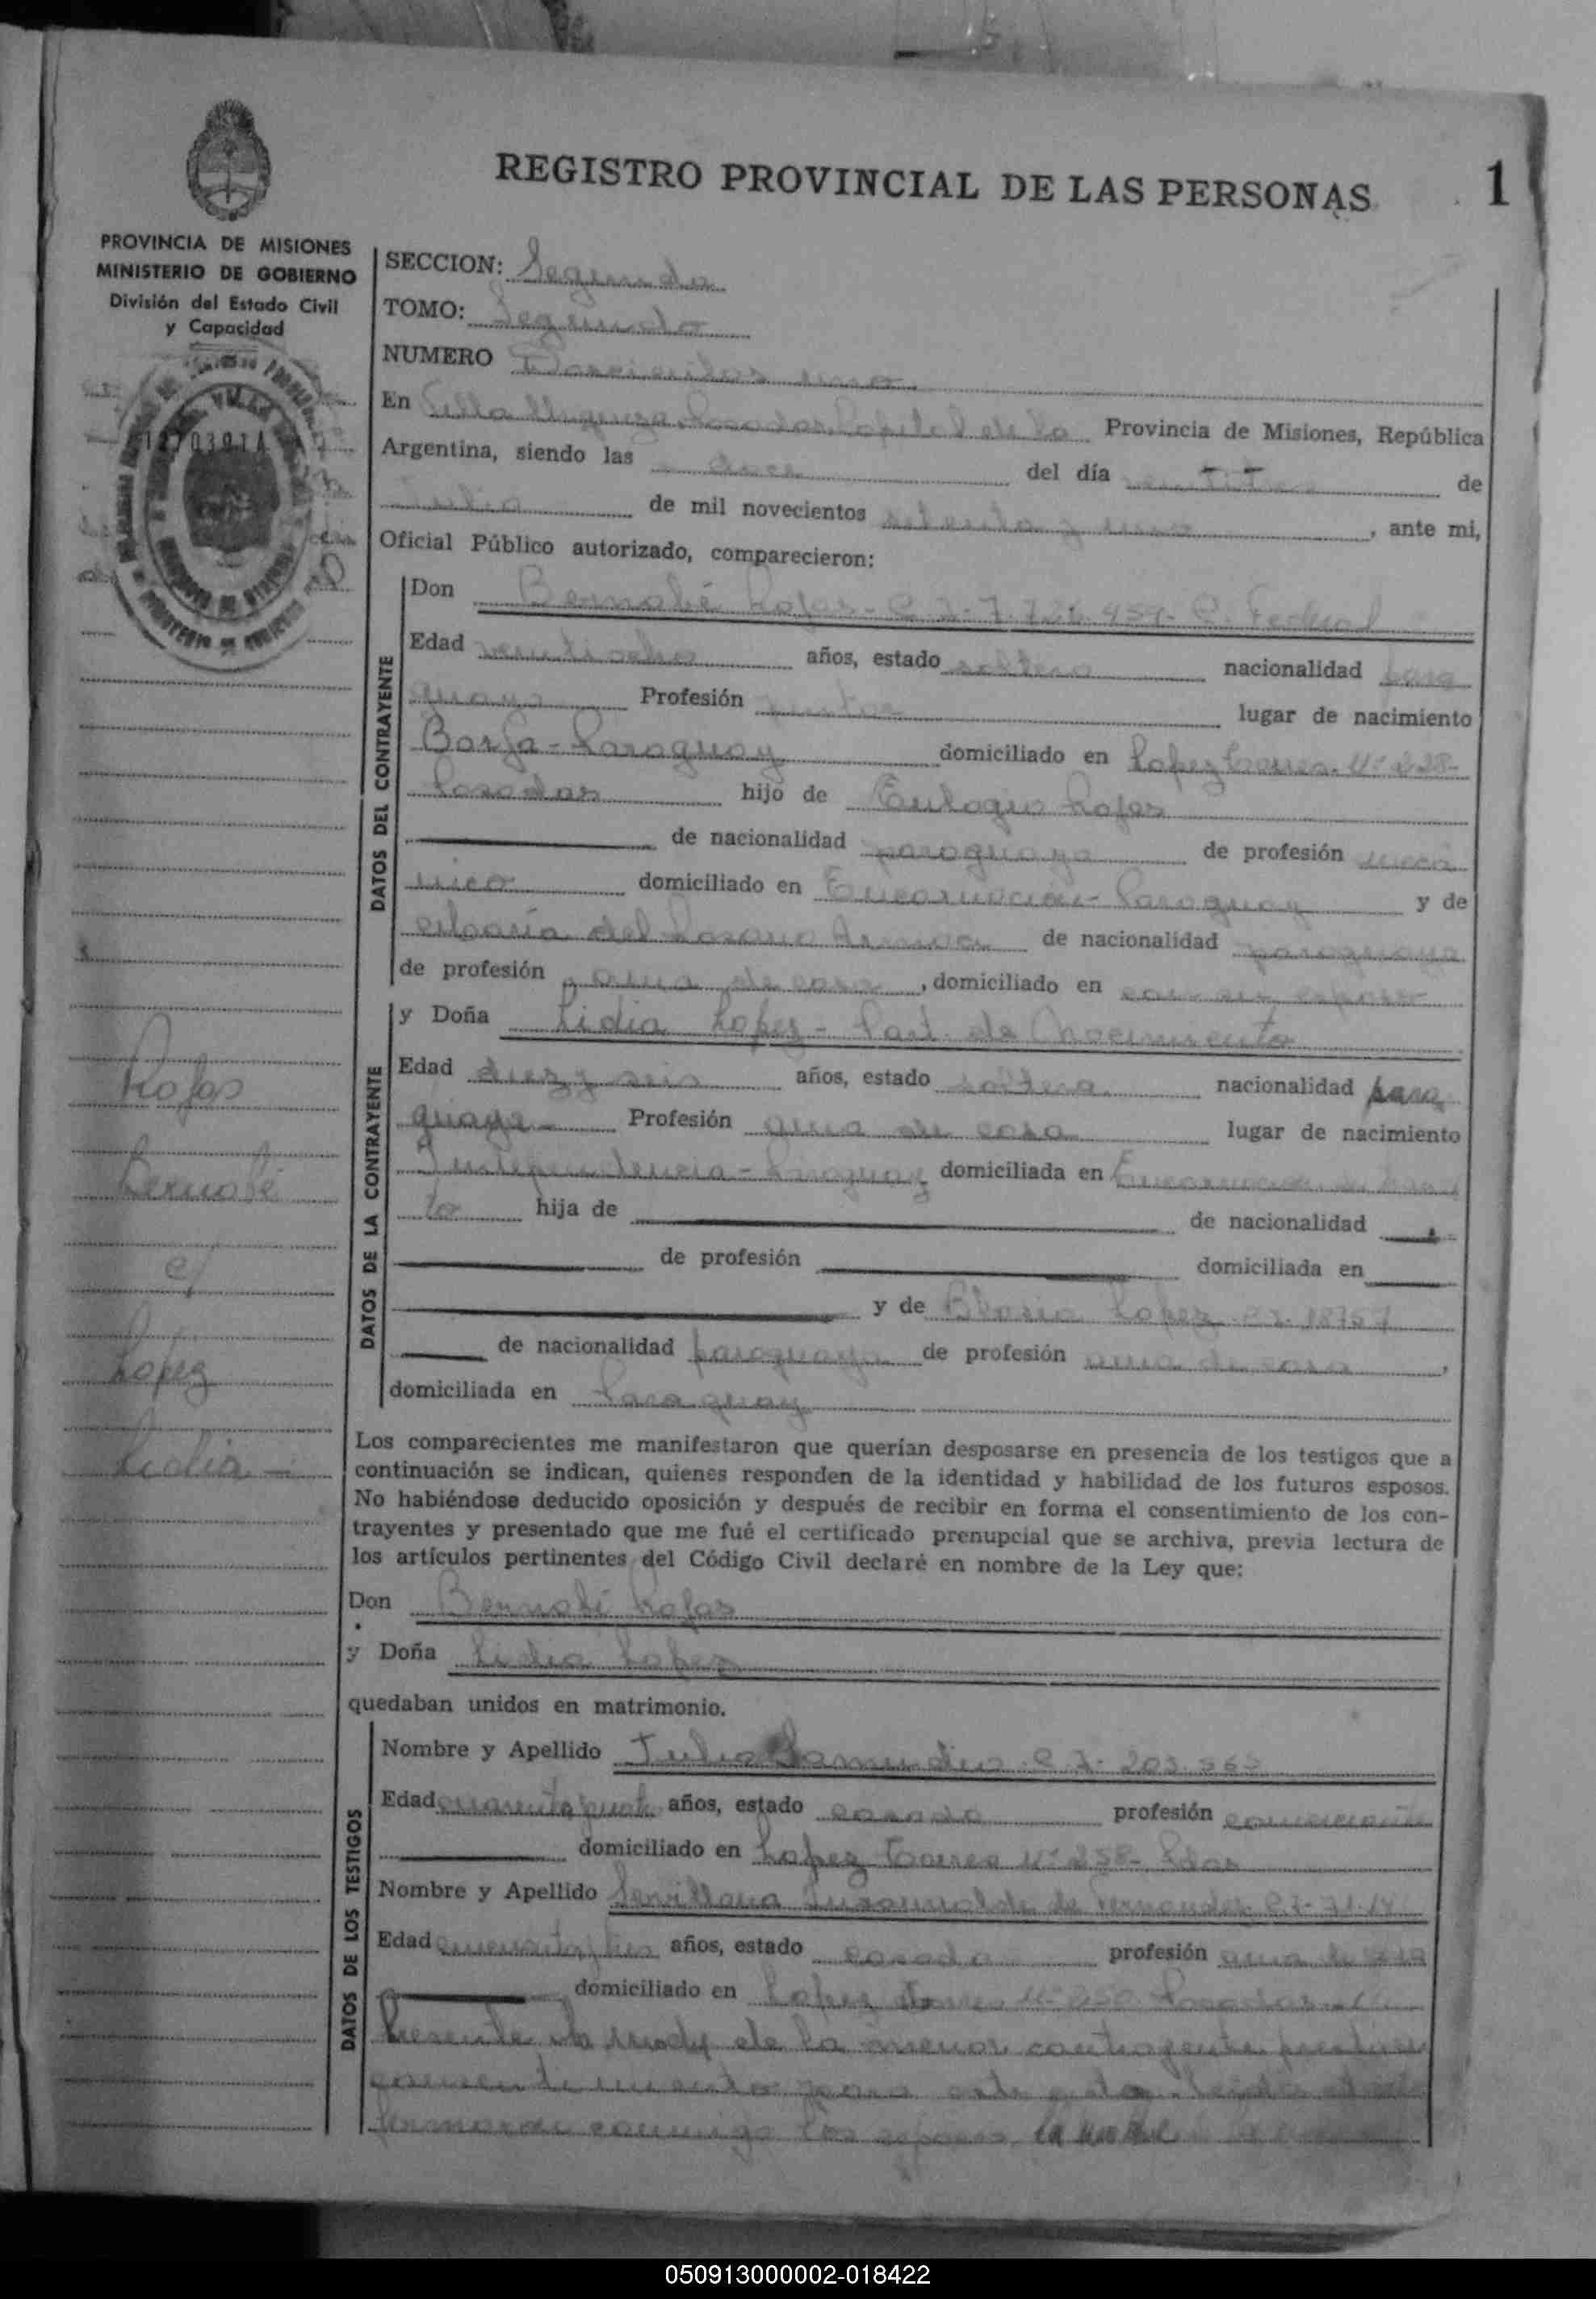 REGISTRO PROVINCIAL DE LAS PERSONAS
1
PROVINCIA DE MISIONES
MINISTERIO DE GOBIERNO
División del Estado Civil
y Capacidad
SECCION: Segunda
TOMO: Segundo
NUMERO Doscientos uno
En Villa Urquiza Posadas Capital de la Provincia de Misiones, República
Argentina, siendo las once del día ventitres de
julio de mil novecientos setenta y uno, ante mi,
Oficial Público autorizado, comparecieron:
DATOS DEL CONTRAYENTE
Don Bernabé Rojas - C.I. P. Federal
Edad ventiocho años, estado soltero nacionalidad para
guaya Profesión pintor lugar de nacimiento
Borja - Paraguay domiciliado en Lopez Torres Nº
Posadas hijo de Eulogio Rojas
de nacionalidad paraguaya de profesión mecá
nico domiciliado en Encarnación - Paraguay y de
María del Rosario de nacionalidad paraguaya
de profesión ama de casa, domiciliado en con su esposo
DATOS DE LA CONTRAYENTE
y Doña Lidia Lopez - Part. de Nacimiento
Edad diez y seis años, estado soltera nacionalidad para
guaya - Profesión ama de casa lugar de nacimiento
Independencia - Paraguay domiciliada en Encarnación
hija de de nacionalidad
de profesión domiciliada en
y de Lopez C.I. 18757
de nacionalidad paraguaya de profesión ama de casa,
domiciliada en Paraguay
Rojas
Bernabé
c/
Lopez
Lidia -
Los comparecientes me manifestaron que querían desposarse en presencia de los testigos que a
continuación se indican, quienes responden de la identidad y habilidad de los futuros esposos.
No habiéndose deducido oposición y después de recibir en forma el consentimiento de los con-
trayentes y presentado que me fué el certificado prenupcial que se archiva, previa lectura de
los artículos pertinentes del Código Civil declaré en nombre de la Ley que:
Don Bernabé Rojas
y Doña Lidia Lopez
quedaban unidos en matrimonio.
DATOS DE LOS TESTIGOS
Nombre y Apellido Julio Samudio C.I. 203.563
Edad años, estado casado profesión comerciante
domiciliado en Lopez Torres Nº 258 - Pdas
Nombre y Apellido Sevillana de Fernandez C.I.
Edad años, estado casada profesión ama de casa
domiciliado en Lopez Torres Nº Posadas
Presente la madre de la menor contrayente
consentimiento para este acto. Leida
firmaron conmigo los esposos la madre
050913000002-018422